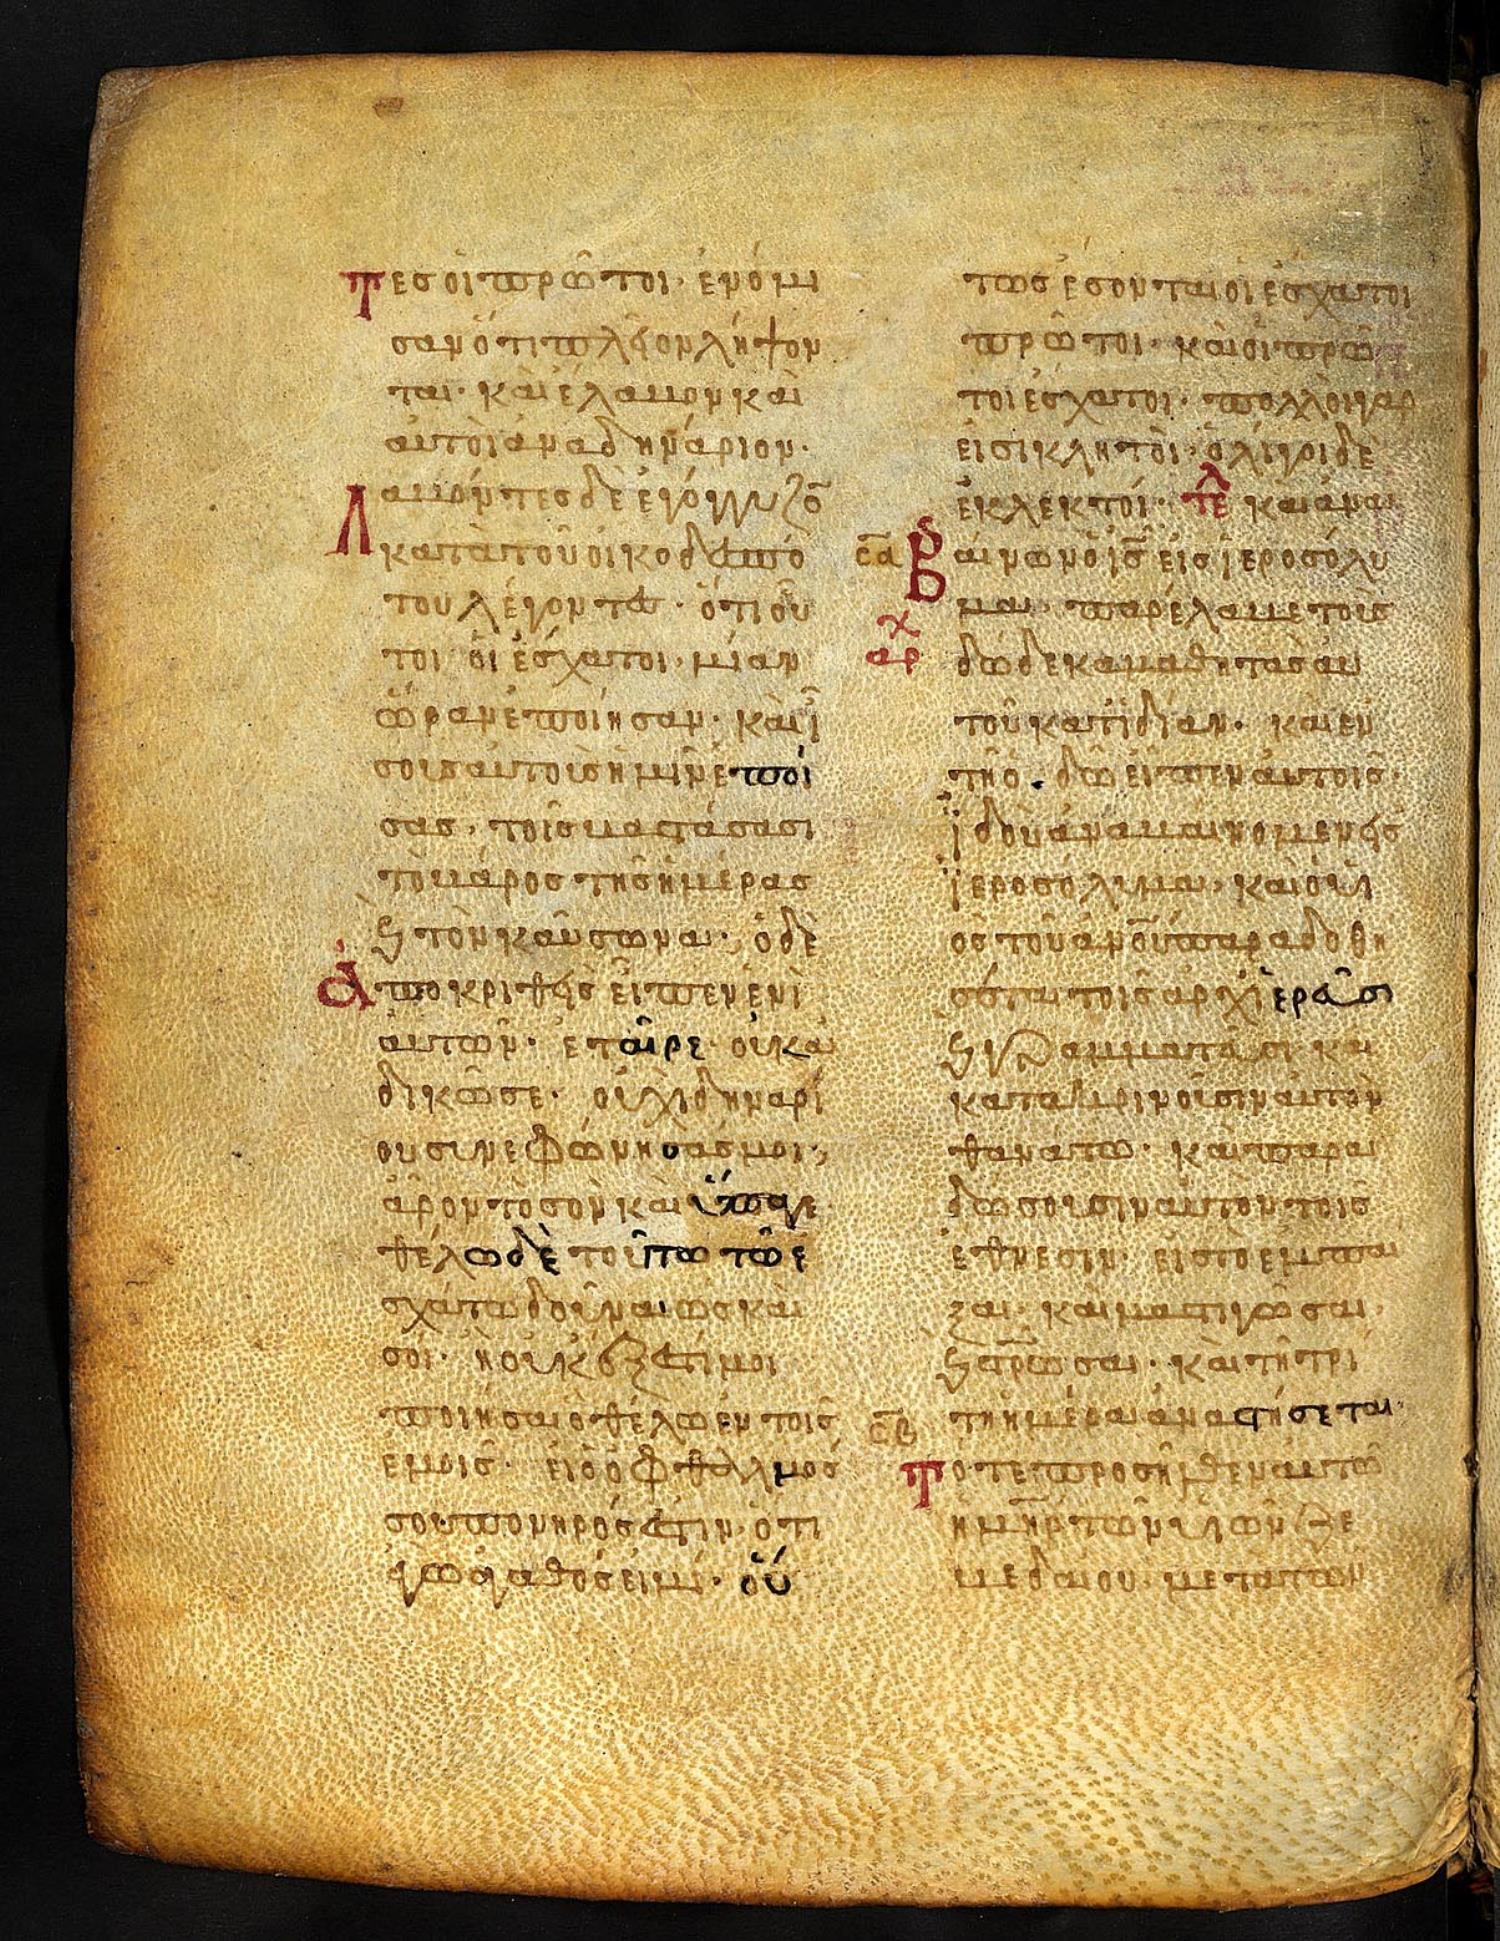 τες οἱ πρῶτοι· ἐνόμι
σαν ὅτι πλεῖον λήψον
ται· καὶ ἔλαβον καὶ
αὐτοὶ ἀνὰ δηνάριον·
Λαβόντες δὲ ἐγόγγυζο̅
κατὰ τοῦ οἰκοδεσπό
του λέγοντες· ὅτι οὗ
τοι οἱ ἔσχατοι· μίαν
ὥραν ἐποίησαν· καὶ ἴ
σους αὐτοὺς ἡμῖν ἐποί
σας· τοῖς βαστάσασι
τὸ βάρος τῆς ἡμέρας
ϗ τὸν καύσωνα· ὁ δὲ
ἀποκριθεὶς εἶπεν ἑνὶ
αὐτῶν· ἑταῖρε οὐκ ἀ
δικῶ σε· οὐχὶ δηναρί
ου συνεφώνησάς μοι;
ἆρον τὸ σὸν καὶ ὕπαγε·
θέλω δὲ τούτω τῶ ἐ
σχάτω δοῦναι ὡς καὶ
σοί· ἢ οὐκ ἔξεστί μοι
ποιῆσαι ὃ θέλω ἐν τοῖς
ἐμοῖς· εἰ ὁ ὀφθαλμός
σου πονηρός ἐστιν· ὅτι
ἐγὼ ἀγαθός εἰμι· οὕ
τως ἔσονται οἱ ἔσχατοι
πρῶτοι· καὶ οἱ πρῶ
τοι ἔσχατοι· πολλοὶ γάρ
εἰσι κλητοὶ· ὀλίγοι δὲ
ἐκλεκτοί· τε^λ καὶ ἀνα
σ̅α̅ βαίνων ὁ ι̅ς̅ εἰς ἱεροσόλυ
μα· παρέλαβε τοὺς
αρ^χ δώδεκα μαθητὰς αὐ
τοῦ κατιδίαν· καὶ ἐν
τῆ ὁδῶ εἶπεν αὐτοῖς·
ἰδοὺ ἀναβαίνομεν εἰς
ἱεροσόλυμα· καὶ ὁ υἱ
ὸς τοῦ ἀν̅ο̅υ̅ παραδοθη
σεται τοῖς ἀρχιερεῦσι
ϗ γραμματεῦσι και
κατακρινοῦσιν αὐτὸν
θανάτω· καὶ παρα
δώσουσιν αὐτὸν τοῖς
ἔθνεσιν· εἰς τὸ ἐμπαι
ξαι· καὶ μαστιγῶσαι·
ϗ σ̅τ̅ρ̅ῶσαι· καὶ τῆ τρί
τη ἡμέρα ἀναστήσεται·
σ̅β̅
Τότε προσῆλθεν αὐτῶ
ἡ μ̅η̅ρ̅ τῶν υἱῶν ζε
βεδαίου· μετὰ τῶν